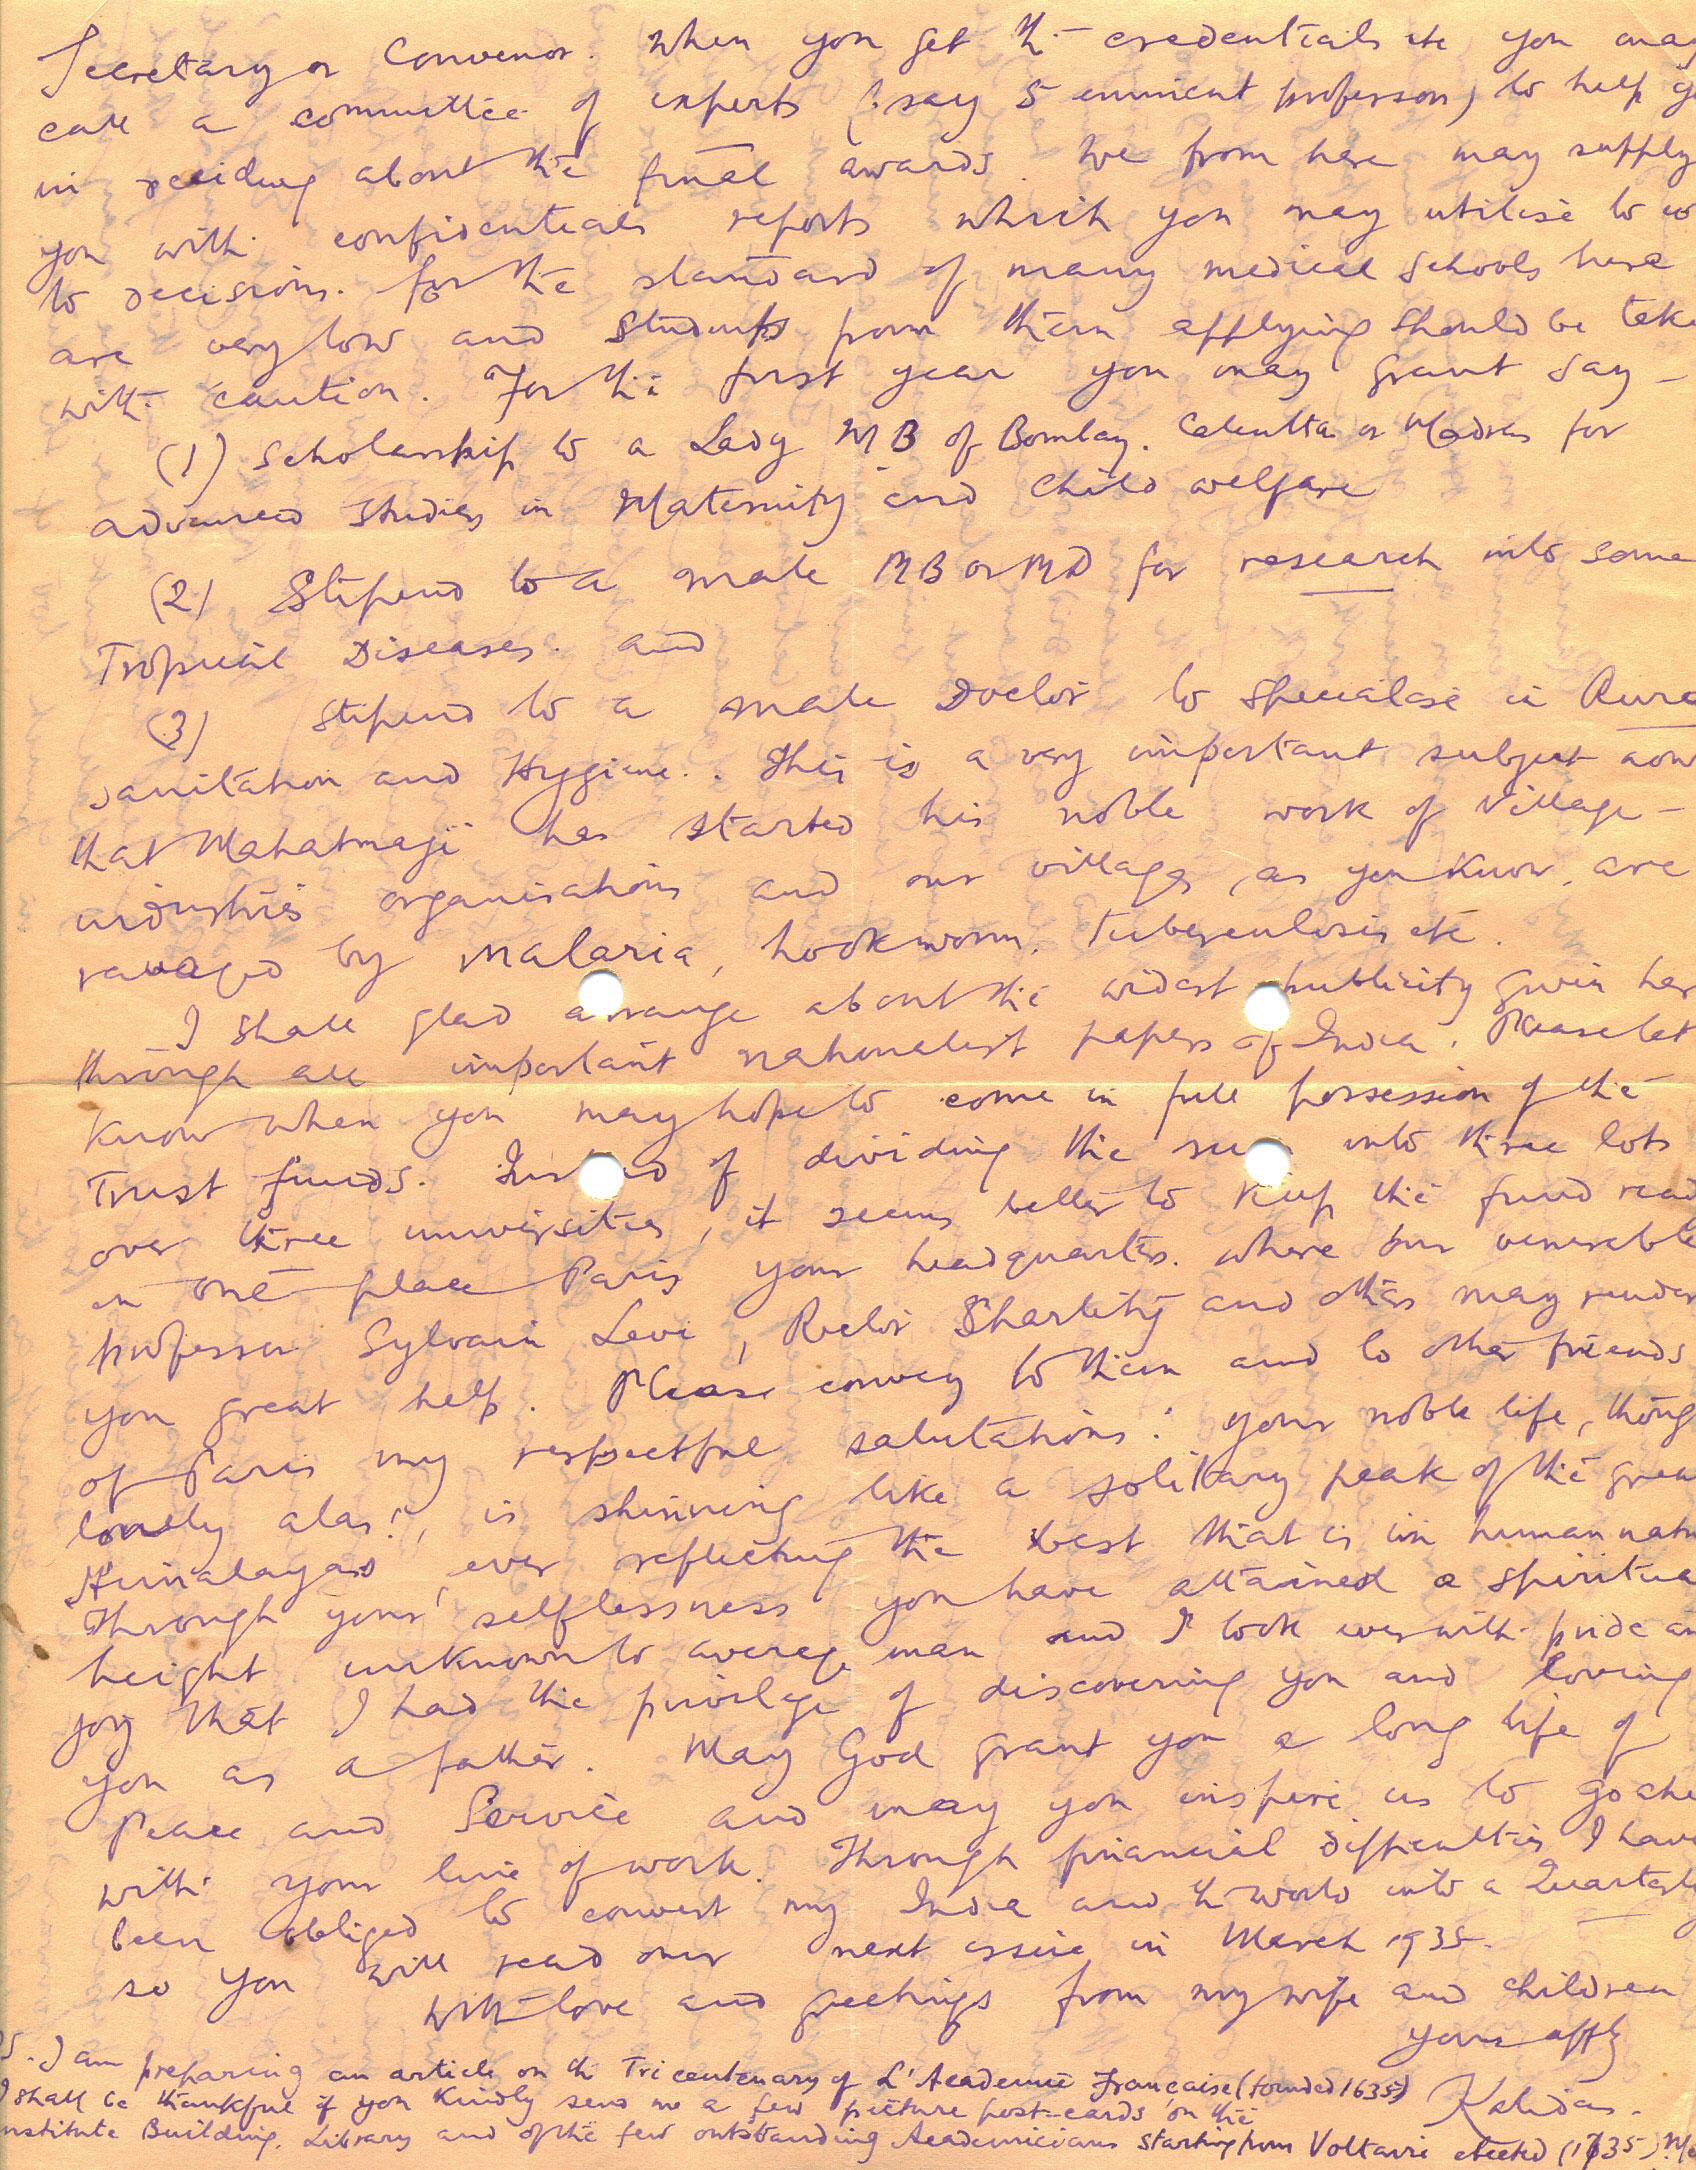 Secretary or Convenor. When you get th- credentials etc you may
call a committee of experts (say 5 eminent professors) to help
in deciding about the final awards. We from here may supply
you with confidential reports which you may utilise to co
to decisions. for the standard of many medical schools here
are very low and students from them applying should be take
with caution. For the first year you may grant say –
(1) Scholarship to a Lady MB of Bombay. Calcutta or Madras for
advanced studies in Maternity and Child welfare
(2) Stipend to a male MB or MD for research into some
Tropical Diseases. and
(3) Stipend to a male Doctor to specialise in Rura
sanitation and Hygiene.. This is a very important subject now
that Mahatmaji has started his noble work of Village –
industries organisations and our villages, as you know, are
ravaged by malaria, hookworm, tuberculosis etc.
I shall glad arrange about the widest publicity given her
through all important nationalist papers of India. Please let
know when you may hope to come in full possession of the
Trust funds. Ins d of dividing the su into three lots
over three universities, it seems better to keep the fund read
in one place Paris your headquarters. where our venerable
professor Sylvain Levi, Rector Sharlety and others may render
you great help. Please convey to them and to other friends
of Paris my respectful salutations. Your noble life, thoug
lonely alas!, is shinning like a solitary peak of the grea
Himalayas, ever reflecting the best that is in human natu
Through your selflessness you have attained a spiritua
height unknown to average man and I look ever with pride an
joy that I had the privilege of discovering you and loving
you as a father. May God grant you a long life of
Peace and Service and may you inspire us to go ahe
with your line of work. Through financial difficulties I have
been obliged to convert my India and th- World into a Quarterly
so you will read our next issue in March 1935.
With love and greetings from my wife and children
yours affly
Kalidas.
S. I am preparing an article on th Tricentenary of L'Academie Francaise (founded 1635)
I shall be thankful if you kindly send me a few picture post-cards on the
nstitute Building, Library and of the few outstanding Academicians starting from Voltaire elected (1735)